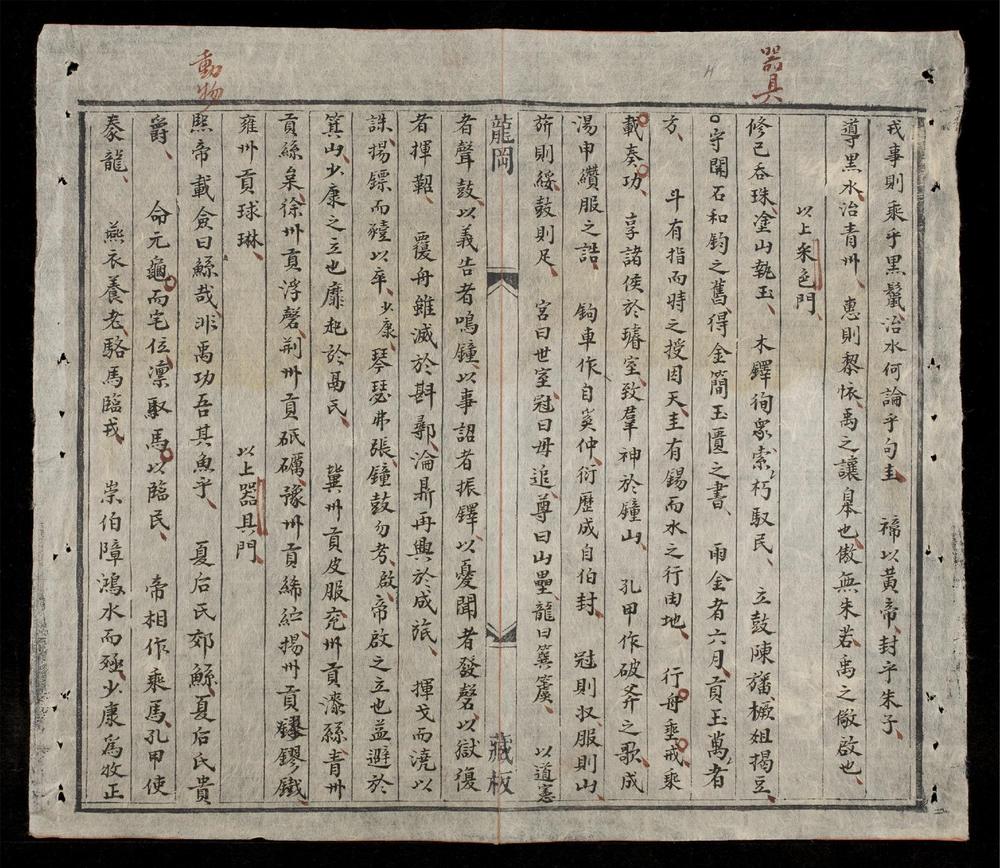 器具
戎事則乘乎黑鬣、治水何論乎句圭、 禘以黃帝、封乎朱子、
導黑水、治青州、 惠則黎懷、禹之讓皐也、傲無朱若、禹之儆啟也、
以上采色門、
修己吞珠、塗山執玉、 木鐸徇衆、索朽馭民、 立鼓陳旛、橛俎揭豆、
守關石和鈞之舊、得金簡玉匱之書、 雨金者六月、貢玉萬者
方、 斗有指而時之授因天、圭有錫而水之行由地、 行舟垂戒、乘
載奏功、 享諸侯於璿室、致羣神於鐘山、 孔甲作破斧之歌、成
湯申纘服之誥、 鉤車作自奚仲、衍歷成自伯封、 冠則收、服則山、
旂則綏、鼓則足、 宮曰世室、冠曰毋追、尊曰山罍、龍曰簨簴、 以道憲
龍岡 藏板
者聲鼓、以義告者鳴鐘、以事詔者振鐸、以憂聞者發磬、以獄復
者揮鞀、 覆舟雖滅於斟鄩、淪鼎再興於成旅、 揮戈而澆以
誅、揚鏢而豷以卒、少康、 琴瑟弗張、鐘鼓勿考、啟、帝啟之立也益避於
箕山、少康之立也靡起於鬲氏、 冀州貢皮服、兗州貢漆絲、青州
貢絲枲、徐州貢浮磬、荊州貢砥礪、豫州貢絺紵、揚州貢璆、鏐鐵、
雍州貢球琳、 以上器具門、
動物
熙帝載僉曰鯀哉、非禹功吾其魚乎、 夏后氏郊鯀、夏后氏貴
爵、 命元龜而宅位、凜馭馬以臨民、 帝相作乘馬、孔甲使
豢龍、 燕衣養老、駱馬臨戎、 崇伯障鴻水而殛、少康為牧正